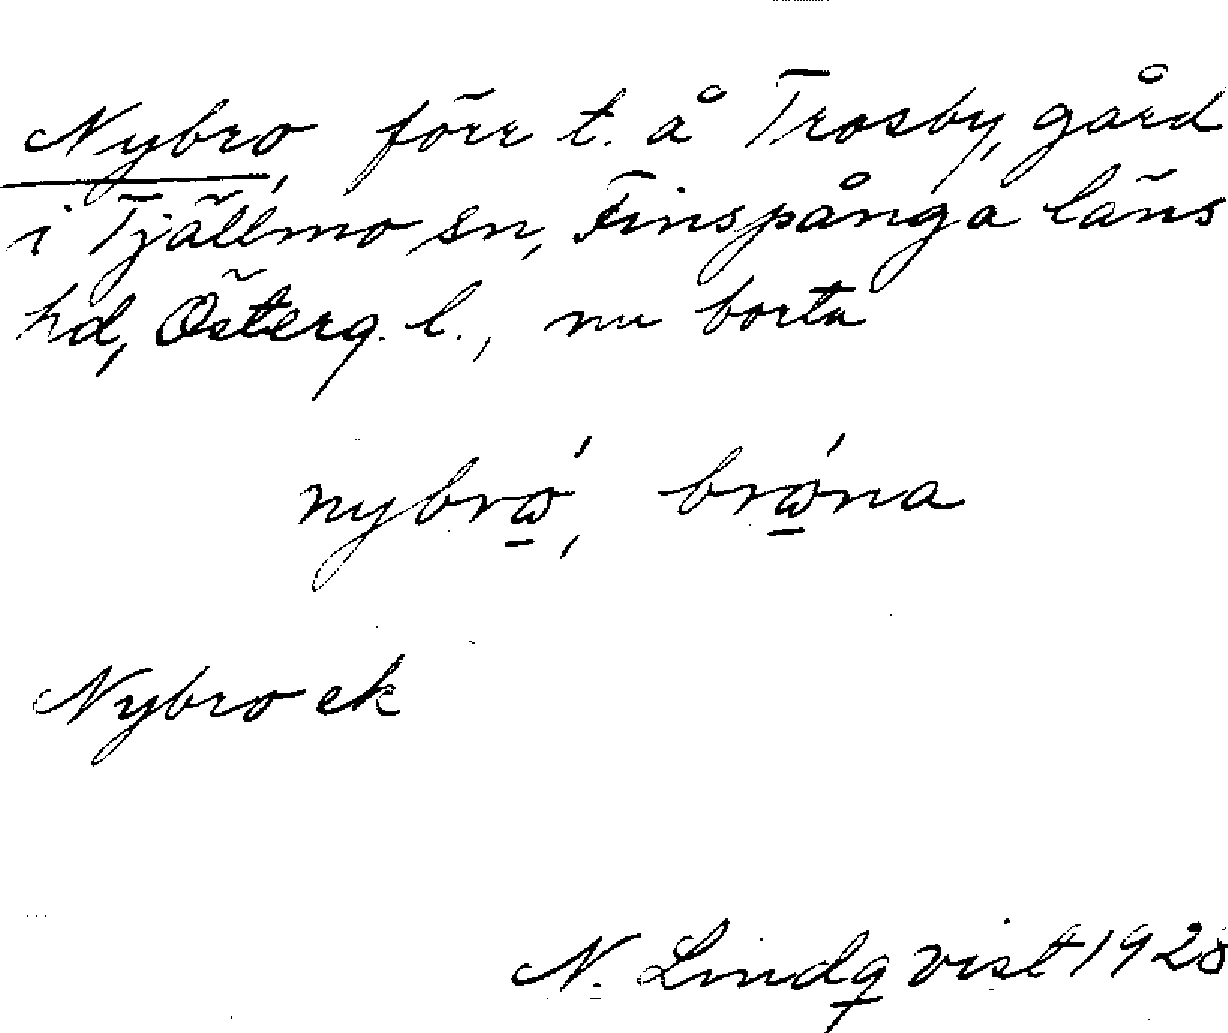 Nybro, förr t. å Trosby, gård
i Tjällmo sn, Finspånga läns
hd, Österg. l., nu borta
nybrώ, brώna
Nybro ek
N. Lindqvist 1928